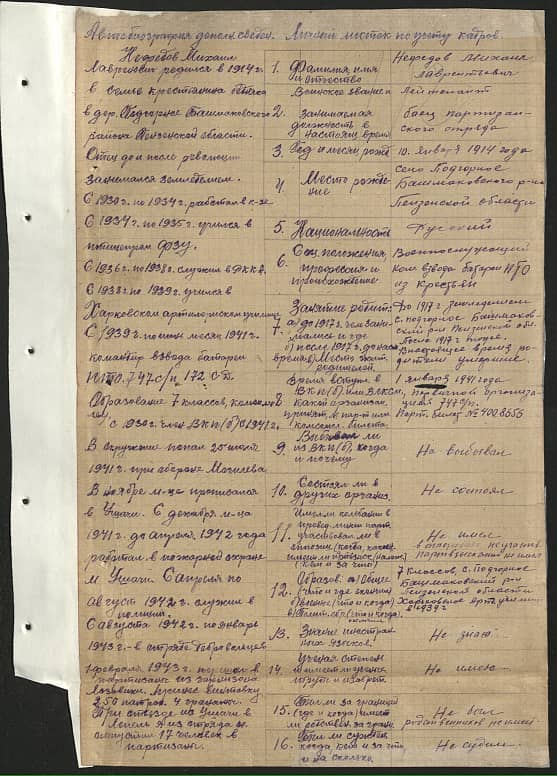 Автобиография дополн. сведен. Личный листок по учету кадров.
Нефедов Михаил
Лаврентьевич родился в 1914 г.
в семье крестьянина
в дер. Подгорное Башмаковского
района Пензенской области.
Отец до и после революции
занимался земледелием.
С 1930 г. по 1934 г. работал в к-зе
С 1934 г. по 1935 г. учился в
ФЗУ.
С 1936 г. по 1938 г. служил в РККА.
С 1938 по 1939 г. учился в
Харьковском артиллерийском училище
С 1939 г. по июль месяц 1941 г.
командир взвода батареи
ПТО. 747 с/п, 172 с.д.
Образование 7 классов,
с 1930 г. член ВКП(б) с 1941 г.
В окружение попал 25 июля
1941 г. при обороне Могилева
В ноябре м-це прописался
в Ушачи. С декабря м-ца
1941 г. до апреля 1942 года
работал в пожарной охране
м. Ушачи С апреля по
август 1942 г. служил в
полиции.
С августа 1942 г. по январь
1943 г. - в отряде Добровольцев
1 февраля 1943 г. перешел в
партизаны из гарнизона
винтовку
250 патрон. 4 гранаты.
При отъезде из Ушачи в
Лепель я из отряда
17 человек в
партизаны.
1. Фамилия, имя
и отчество
Воинское звание
Нефедов Михаил
Лаврентьевич
Лейтенант
2. Занимаемая
должность в
настоящ. время
боец партизан-
ского отряда
3. Год и месяц рожд.
10. января 1914 года
4. Место рожде-
ние
село Подгорное
Башмаковского р-на
Пензенской области
5. Национальность
Русский
6. Соц. положения,
профессия и
происхождение
Военнослужащий
ком взвода батареи ПТО
из крестьян
7. Занятие родит.
а) до 1917 г. чем зани-
мались и где
б) после 1917 г. до наст.
время в) Место жит.
родителей
До 1917 г. земледелием
с. Подгорное Башмаков-
ский р-н Пензенской обл.
После 1917 г. тоже.
В настоящее время ро-
дители умершие.
8. Время вступл. в
ВКП(б) или ВЛКСМ,
какой организац.
принят, № парт. или
комсомол. билета
1 января 1941 года
первичной организа-
цией 747 с/п.
Парт. билет № 4008653
9. Выбывал ли
из ВКП(б), когда
и почему
Не выбывал
10. Состоял ли в
других партиях.
Не состоял
11. Имел ли колебания в
провед. линии парт.
участвовал ли в
оппозиц. (когда, какой)
имел ли партвзыск. (налож.
(кем и за что)
Не имел
в оппозиции не участв.
Партвзыскания не имел
12. Образов. а) Общее
(что и где окончил)
б) Военное (что и когда)
в) Полит. обр. (что и когда)
7 классов, с. Подгорное
Башмаковский р-н
Пензенской области
Харьковское арт. училище
в 1939 г.
13. Знание иностран-
ных языков.
Не знаю.
14. Ученая степень
и имеет ли ученые
труды и изобрет.
Не имею.
15. Был ли за границей
(где и когда) имеет
ли родствен. за гран.
Не был
родственников не имею
16. Был ли судим
когда, кем и за что
и на сколько.
Не судился.